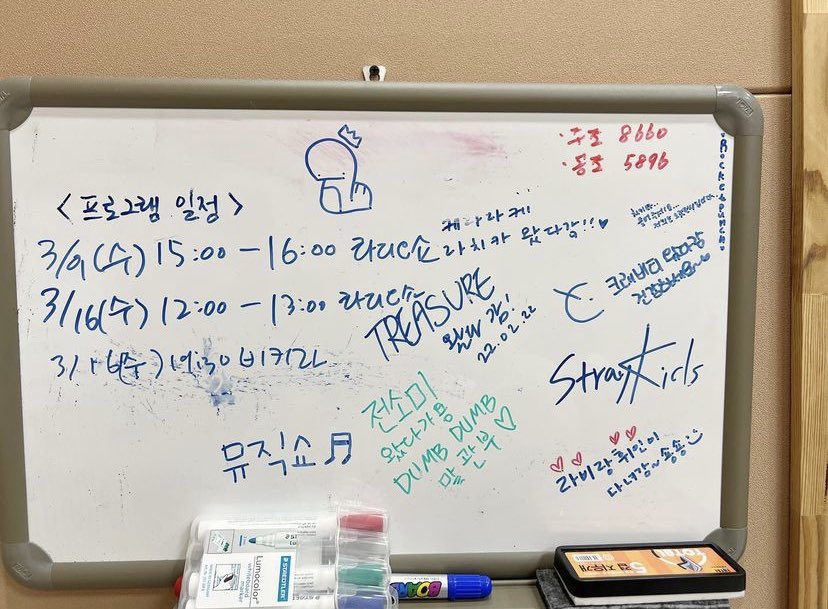 8660
5896
Rocketpunch
<프로그램 일정>
3/9(수) 15:00 - 16:00 라디오쇼
라치카 왔다감!!♥
3/16(수) 12:00 - 13:00 라디오쇼
3/16(수) 19:30 비키라
TREASURE
왔다 감!
22.02.22
크래비티 왔다감
Stray Kids
전소미
왔다가용
DUMB DUMB
말 관 부 ♡
뮤직쇼
라비랑 휘인이
다녀감~ 송송
STAEDTLER
Lumocolor
whiteboard
marker
BOARD
TOTAL
칠판지우개